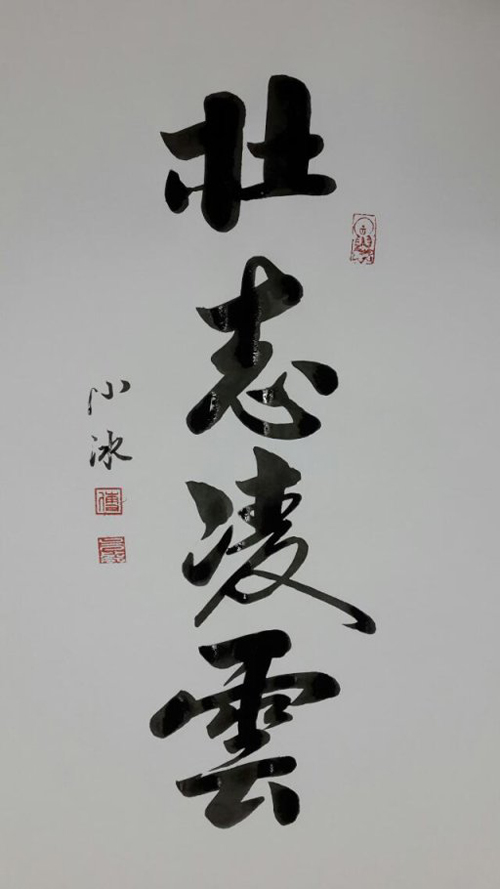 壮志凌雲
小冰
傅